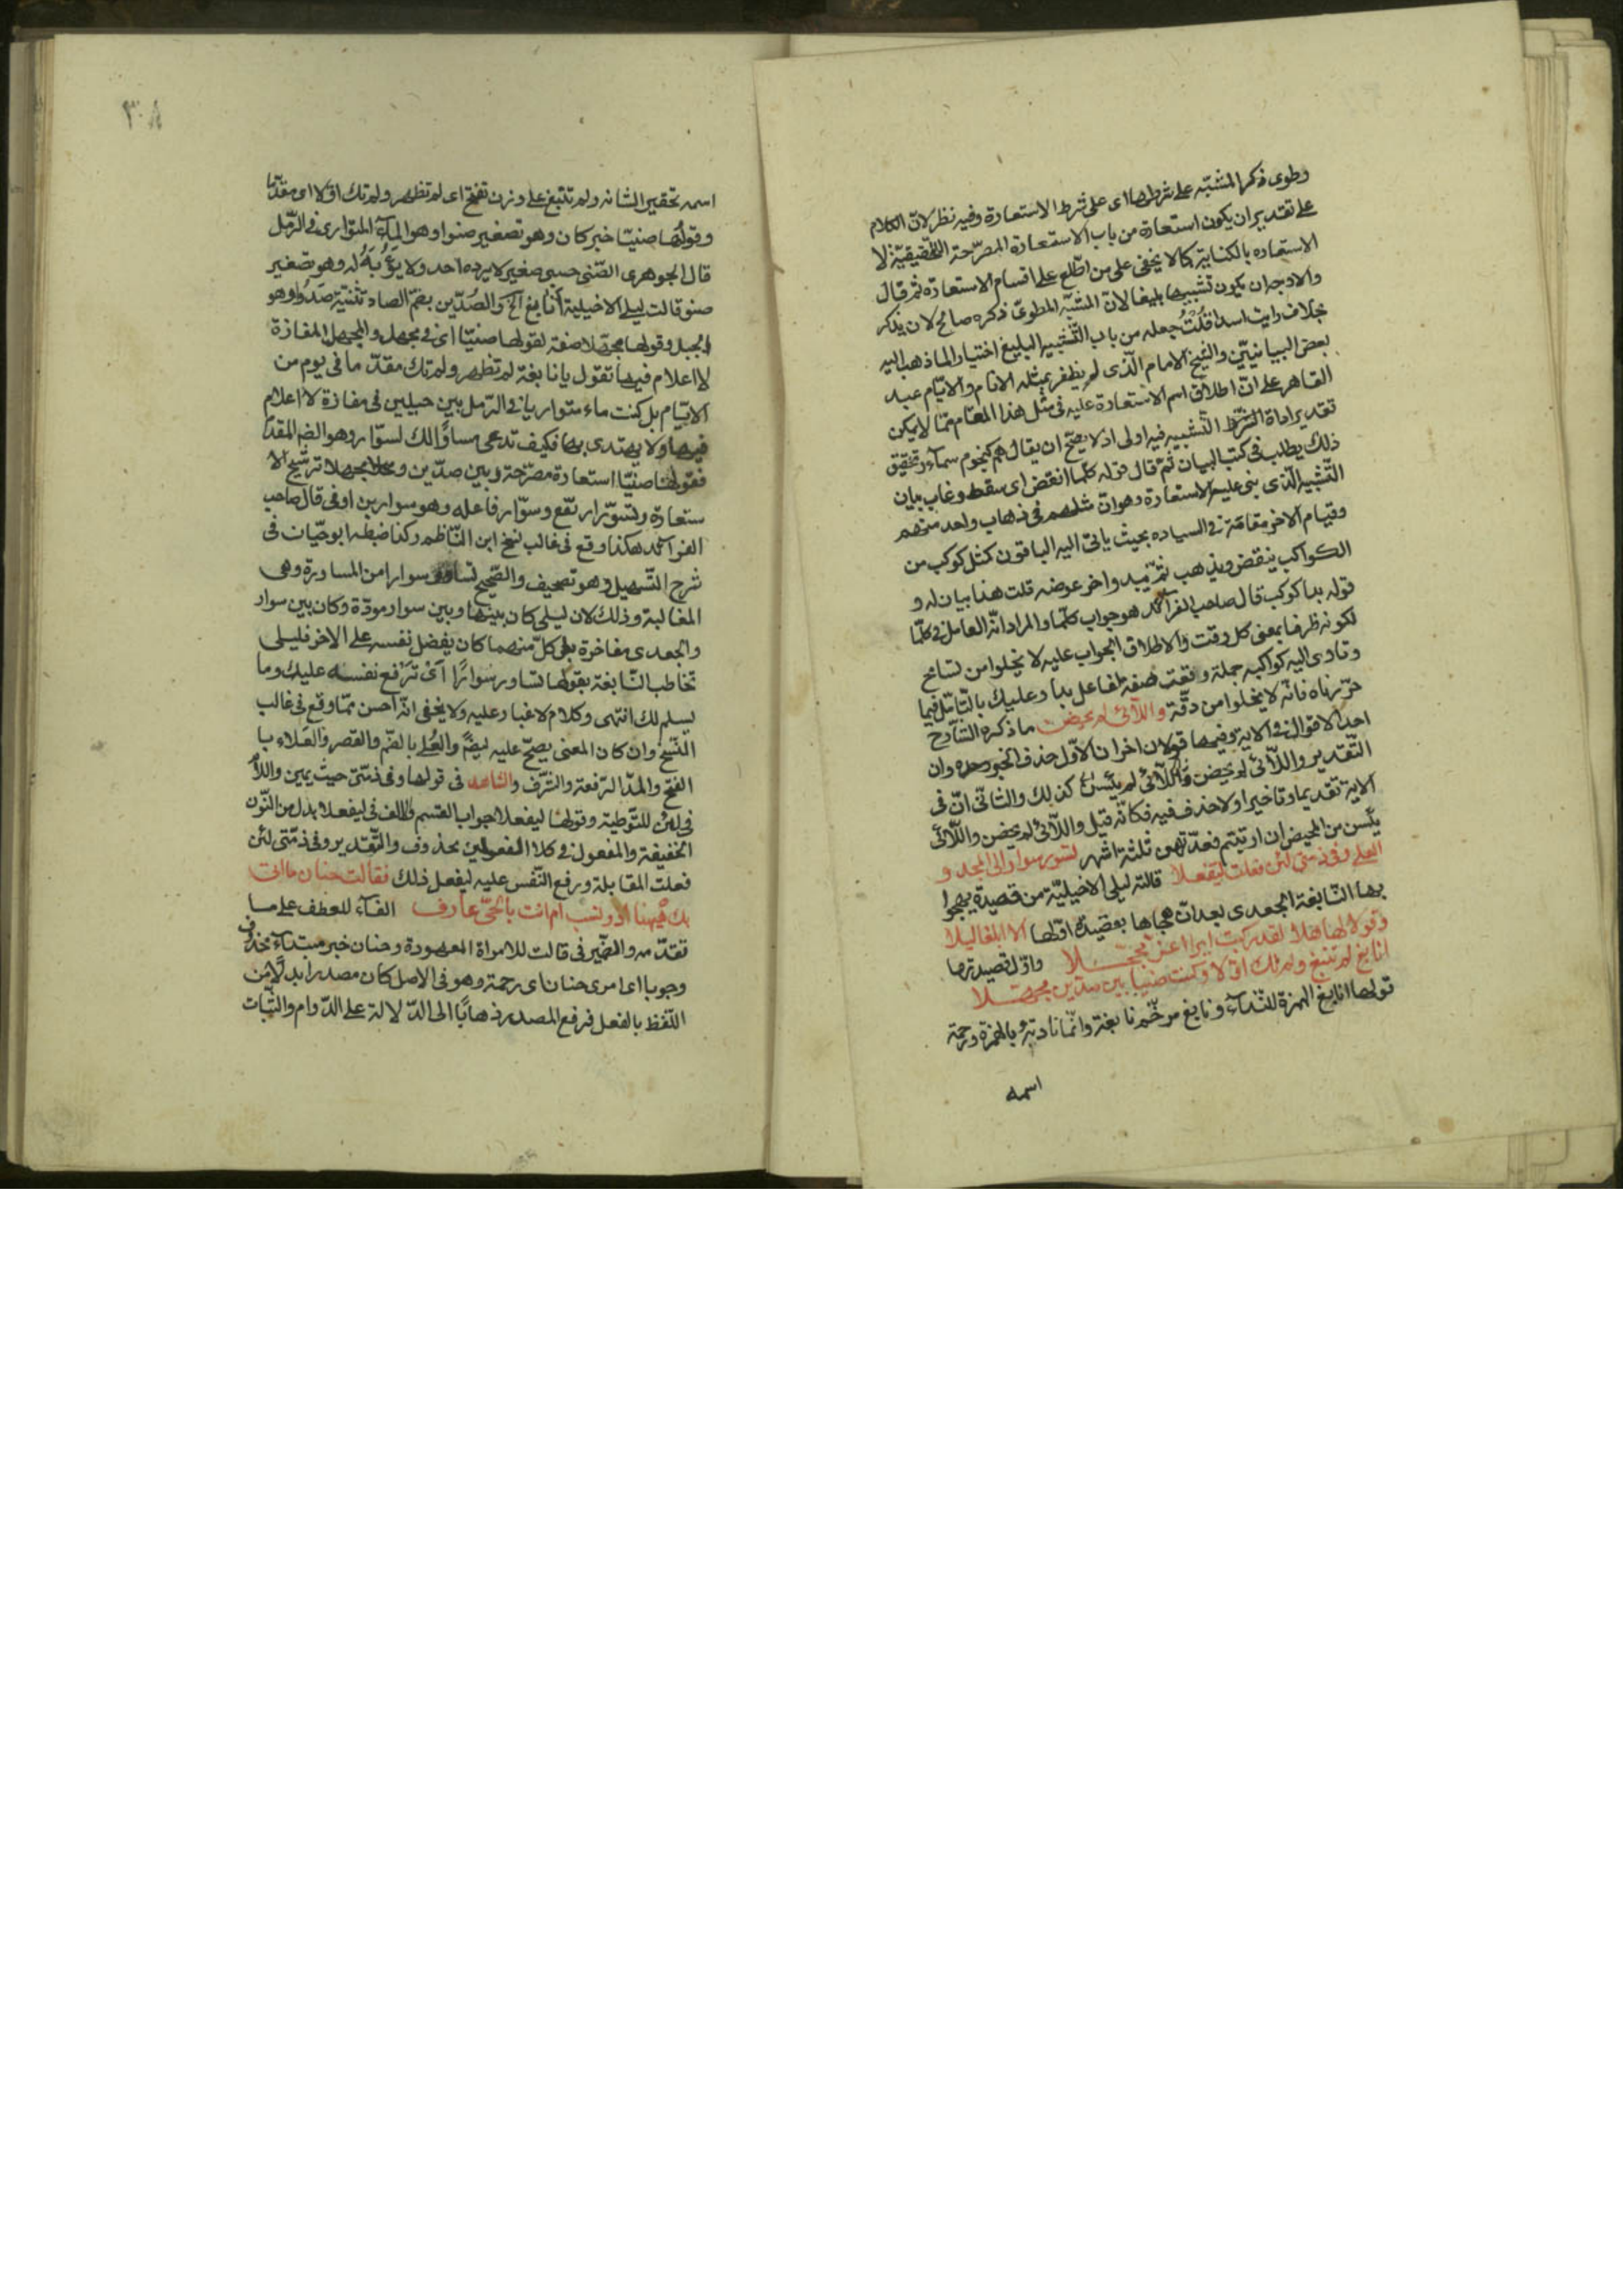 وطوى ذكر المشبّه على شرطها اى على شرط الاستعارة وفيه نظر لانّ الكلام
على تقدير ان يكون استعارة من باب الاستعارة المصرّحة التحقيقيّة لا
الاستعاره بالكناية كما لا يخفى على من اطّلع على اقسام الاستعارة ثم قال
والاوجه ان يكون تشبيها بليغا لانّ المشبّه المطوىّ ذكره صالح لان يذكر
بخلاف رايت اسدا قُلْتُ جعله من باب التّشبيه البليغ اختيار لما ذهب اليه
بعض البيانيّين والشيخ الامام الّذى لم يظفر بمثله الانام والايّام عبد
القاهر على انّ اطلاق اسم الاستعارة عليه فى مثل هذا المقام ممّا لا يمكن
تقدير اداة التشبيه فيه اولى اذ لا يصحّ ان يقال هم كنجوم سمآء وتحقيق
ذلك يطلب فى كتب البيان ثمّ قال قوله كلّما انقض اى سقط وغاب بيان
التّشبيه الّذى بنى عليه الاستعارة وهو انّ مثلهم فى ذهاب واحد منهم
وقيام الاخر مقامه فى السياده بحيث ياتى اليه الباقون كمثل كوكب من
الكواكب ينقض ويذهب ثمّ يبد واخر عوضه قلت هذا بيان له و
قوله بدا كوكب قال صاحب الفرآئد هو جواب كلّما والمراد انّه العامل فى كلّما
لكونه ظرفا بمعنى كل وقت والاطلاق الجواب عليه لا يخلوا من تسامح
وتاوى اليه كواكبه جملة وقعت صفة لفاعل بدا وعليك بالتّامّل فيما
حرّرناه فانّه لا يخلوا من دقّة واللّآئى لم يحضن ما ذكره الشارح
احد الاقوال فى الاية وفيها قولان اخران الاوّل حذف الخبر وحده وان
التّقدير واللّآئى لم يحضن واللّآئى لم يئسن كذلك والثانى انّ فى
الاية تقديما وتاخيرا ولا حذف فيه فكانّه قيل واللّآئى لم يحضن واللّآئى
يئسن من المحيض ان ارتبتم فعدّتهن ثلثة اشهر تسور سوار الى المجد و
العلى وفى ذمتى لئن فعلت ليفعلا قالته ليلى الاخيليّة من قصيدة يهجوا
بها النّابغة الجعدى بعد ان هجاها بقصيدة اوّلها الا ابلغا ليلا
وقولا لها هلا لقد ركبت ايرا اغرّ محجّلا واوّل قصيدتها
انابغ لم تنبغ ولم تك اوّلا وكنت صنيّا بين صدّين مجهلا
قولها انابغ الهمزة للنّدآء ونابغ مرخّم نابغة وانّما نادته بالهمزة ورخّمة
اسمه
٣٠٨
اسمه تحقير الشانه ولم تنبغ على وزن تفتح اى لم تظهر ولم تك اوّلا اى مقدّما
وقولها صنيّا خبر كان وهو تصغير صنوا وهو المآء المتوارى فى الرّمل
قال الجوهرى الصّنى حسى صغير لا يرده احد ولا يُؤْبَهُ له وهو تصغير
صنو قالت ليلى الاخيلية أنابغ الخ والصُدّين بضمّ الصاد تثنية صدّ وهو
الجبل وقولها مجهلا صفة لقولها صنيّا اى فى مجهل والمجهل المفازة
لا اعلام فيها تقول يا نابغة لم تظهر ولم تك مقدّما فى يوم من
الايّام بل كنت ماء متواريا فى الرّمل بين جبلين فى مفازة لا اعلام
فيها ولا يهتدى بها فكيف تدعى مساوًا لك لسوّار وهو الضم المقدّم
فقولها صنيّا استعارة مصرّحة وبين صدّين ومجهلا ترشيح الا
ستعارة وتسوّر ارتفّع وسوّار فاعله وهو سوار بن اوفى قال صاحب
الفرآئد هكذا وقع فى غالب نسخ ابن النّاظم وكذا ضبطه ابو حيّان فى
شرح التّسهيل وهو تصحيف والصّحيح تساور سوارا من المساورة وهى
المغالبة وذلك لان ليلى كان بينها وبين سوار مودّة وكان بين سوار
والجعدى مفاخرة بقى كلّ منهما كان يفضل نفسه على الاخر فليلى
تخاطب النّابغة بقولها تساور سوارًا أى ترفع نفسه عليك وما
يسلم لك انتهى وكلام لا غبار عليه ولا يخفى انّه احسن ممّا وقع فى غالب
النّسخ وان كان المعنى يصحّ عليه ايضًا والعُلى بالضّم والقصر والعَلاء با
الفتح والمدّ الرّفعة والشّرف والشاهد فى قولها وفى ذمّتى حيث يمين واللّام
فى لئن للتّوطية وقولها ليفعلا جواب القسم والالف فى ليفعلا بدل من النّون
الخفيفة والمفعول فى كلا الفعلين محذوف والتّقدير وفى ذمّتى لئن
فعلت المقابلة ويرفع النّفس عليه ليفعل ذلك فقالت حنان ما اتى
بك هيهنا اذو نسب ام انت بالحىّ عارف الفآء للعطف على ما
تقدّمه والضّمير فى قالت للامراة المعهودة وحنان خبر مبتدآء محذوف
وجوبا اى امرى حنان اى رحمة وهو فى الاصل كان مصدرا بدلًا من
اللّفظ بالفعل فرفع المصدر ذهابًا الى الدّلالة على الدّوام والثّبات